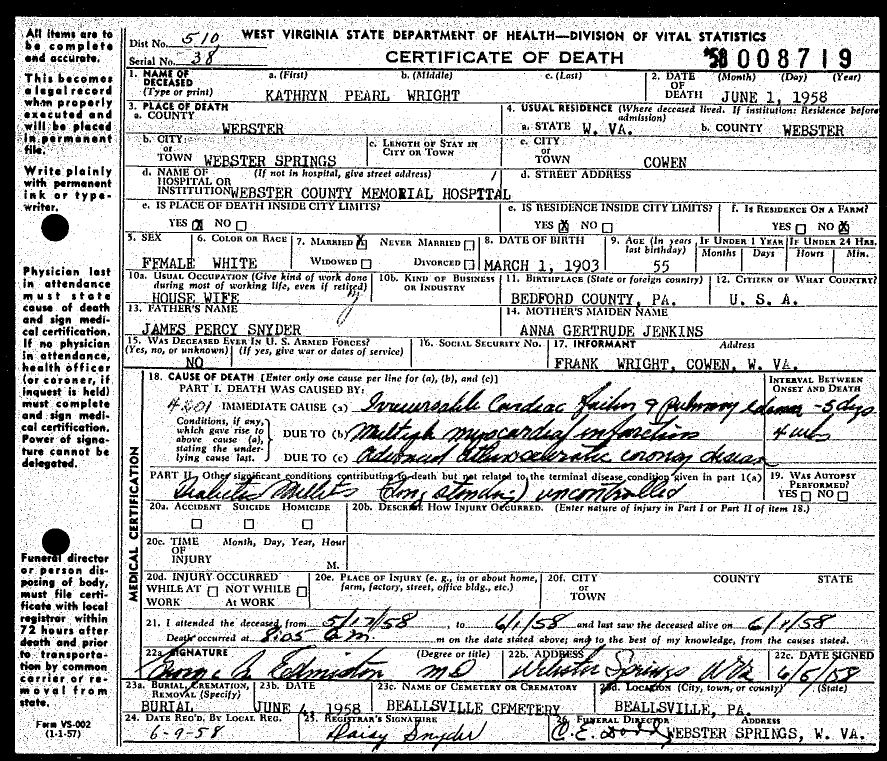 All items are to be complete and accurate.
This becomes a legal record when properly executed and will be placed in permanent file.
Write plainly with permanent ink or typewriter.
Physician last in attendance must state cause of death and sign medical certification. If no physician in attendance, health officer (or coroner, if inquest is held) must complete and sign medical certification. Power of signature cannot be delegated.
Funeral director or person disposing of body, must file certificate with local registrar within 72 hours after death and prior to transportation by common carrier or removal from state.
Form VS-002
(1-1-57)
WEST VIRGINIA STATE DEPARTMENT OF HEALTH—DIVISION OF VITAL STATISTICS
Dist No. 510
Serial No. 38
CERTIFICATE OF DEATH
58 008719
1. NAME OF DECEASED (Type or print) a. (First) b. (Middle) c. (Last)
KATHRYN PEARL WRIGHT
2. DATE OF DEATH (Month) (Day) (Year)
JUNE 1, 1958
3. PLACE OF DEATH
a. COUNTY
WEBSTER
4. USUAL RESIDENCE (Where deceased lived. If institution: Residence before admission)
a. STATE W. VA. b. COUNTY WEBSTER
b. CITY or TOWN WEBSTER SPRINGS
c. LENGTH OF STAY IN CITY OR TOWN
c. CITY or TOWN COWEN
d. NAME OF HOSPITAL OR INSTITUTION (If not in hospital, give street address)
WEBSTER COUNTY MEMORIAL HOSPITAL
d. STREET ADDRESS
e. IS PLACE OF DEATH INSIDE CITY LIMITS?
YES X NO
e. IS RESIDENCE INSIDE CITY LIMITS?
YES X NO
f. IS RESIDENCE ON A FARM?
YES NO X
5. SEX
FEMALE
6. COLOR OR RACE
WHITE
7. MARRIED X NEVER MARRIED
WIDOWED DIVORCED
8. DATE OF BIRTH
MARCH 1, 1903
9. AGE (In years last birthday)
55
IF UNDER 1 YEAR Months Days
IF UNDER 24 HRS. Hours Min.
10a. USUAL OCCUPATION (Give kind of work done during most of working life, even if retired)
HOUSE WIFE
10b. KIND OF BUSINESS OR INDUSTRY
11. BIRTHPLACE (State or foreign country)
BEDFORD COUNTY, PA.
12. CITIZEN OF WHAT COUNTRY?
U. S. A.
13. FATHER'S NAME
JAMES PERCY SNYDER
14. MOTHER'S MAIDEN NAME
ANNA GERTRUDE JENKINS
15. WAS DECEASED EVER IN U. S. ARMED FORCES?
(Yes, no, or unknown) (If yes, give war or dates of service)
NO
16. SOCIAL SECURITY NO.
17. INFORMANT Address
FRANK WRIGHT, COWEN, W. VA.
MEDICAL CERTIFICATION
18. CAUSE OF DEATH [Enter only one cause per line for (a), (b), and (c)]
PART I. DEATH WAS CAUSED BY:
INTERVAL BETWEEN ONSET AND DEATH
4201 IMMEDIATE CAUSE (a) Irreversible Cardiac failure & Pulmonary edema - 5 days
Conditions, if any, which gave rise to above cause (a), stating the underlying cause last.
DUE TO (b) Multiple myocardial infarctions 4 wks
DUE TO (c) Advanced atherosclerotic coronary disease
PART II. Other significant conditions contributing to death but not related to the terminal disease condition given in part 1(a)
Diabetes Mellitus (long standing) uncontrolled
19. WAS AUTOPSY PERFORMED?
YES NO
20a. ACCIDENT SUICIDE HOMICIDE
20b. DESCRIBE HOW INJURY OCCURRED. (Enter nature of injury in Part I or Part II of item 18.)
20c. TIME OF INJURY Month, Day, Year, Hour
M.
20d. INJURY OCCURRED
WHILE AT WORK NOT WHILE AT WORK
20e. PLACE OF INJURY (e. g., in or about home, farm, factory, street, office bldg., etc.)
20f. CITY or TOWN COUNTY STATE
21. I attended the deceased from 5/17/58, to 6/1/58 and last saw the deceased alive on 6/1/58
Death occurred at 8:05 a.m. m on the date stated above; and to the best of my knowledge, from the causes stated.
22a. SIGNATURE (Degree or title)
Edmiston MD
22b. ADDRESS
Webster Springs W Va
22c. DATE SIGNED
6/5/58
23a. BURIAL, CREMATION, REMOVAL (Specify)
BURIAL
23b. DATE
JUNE 4, 1958
23c. NAME OF CEMETERY OR CREMATORY
BEALLSVILLE CEMETERY
23d. LOCATION (City, town, or county) (State)
BEALLSVILLE, PA.
24. DATE REC'D. BY LOCAL REG.
6-9-58
25. REGISTRAR'S SIGNATURE
Daisy Snyder
26. FUNERAL DIRECTOR ADDRESS
C. E. Dodd, WEBSTER SPRINGS, W. VA.